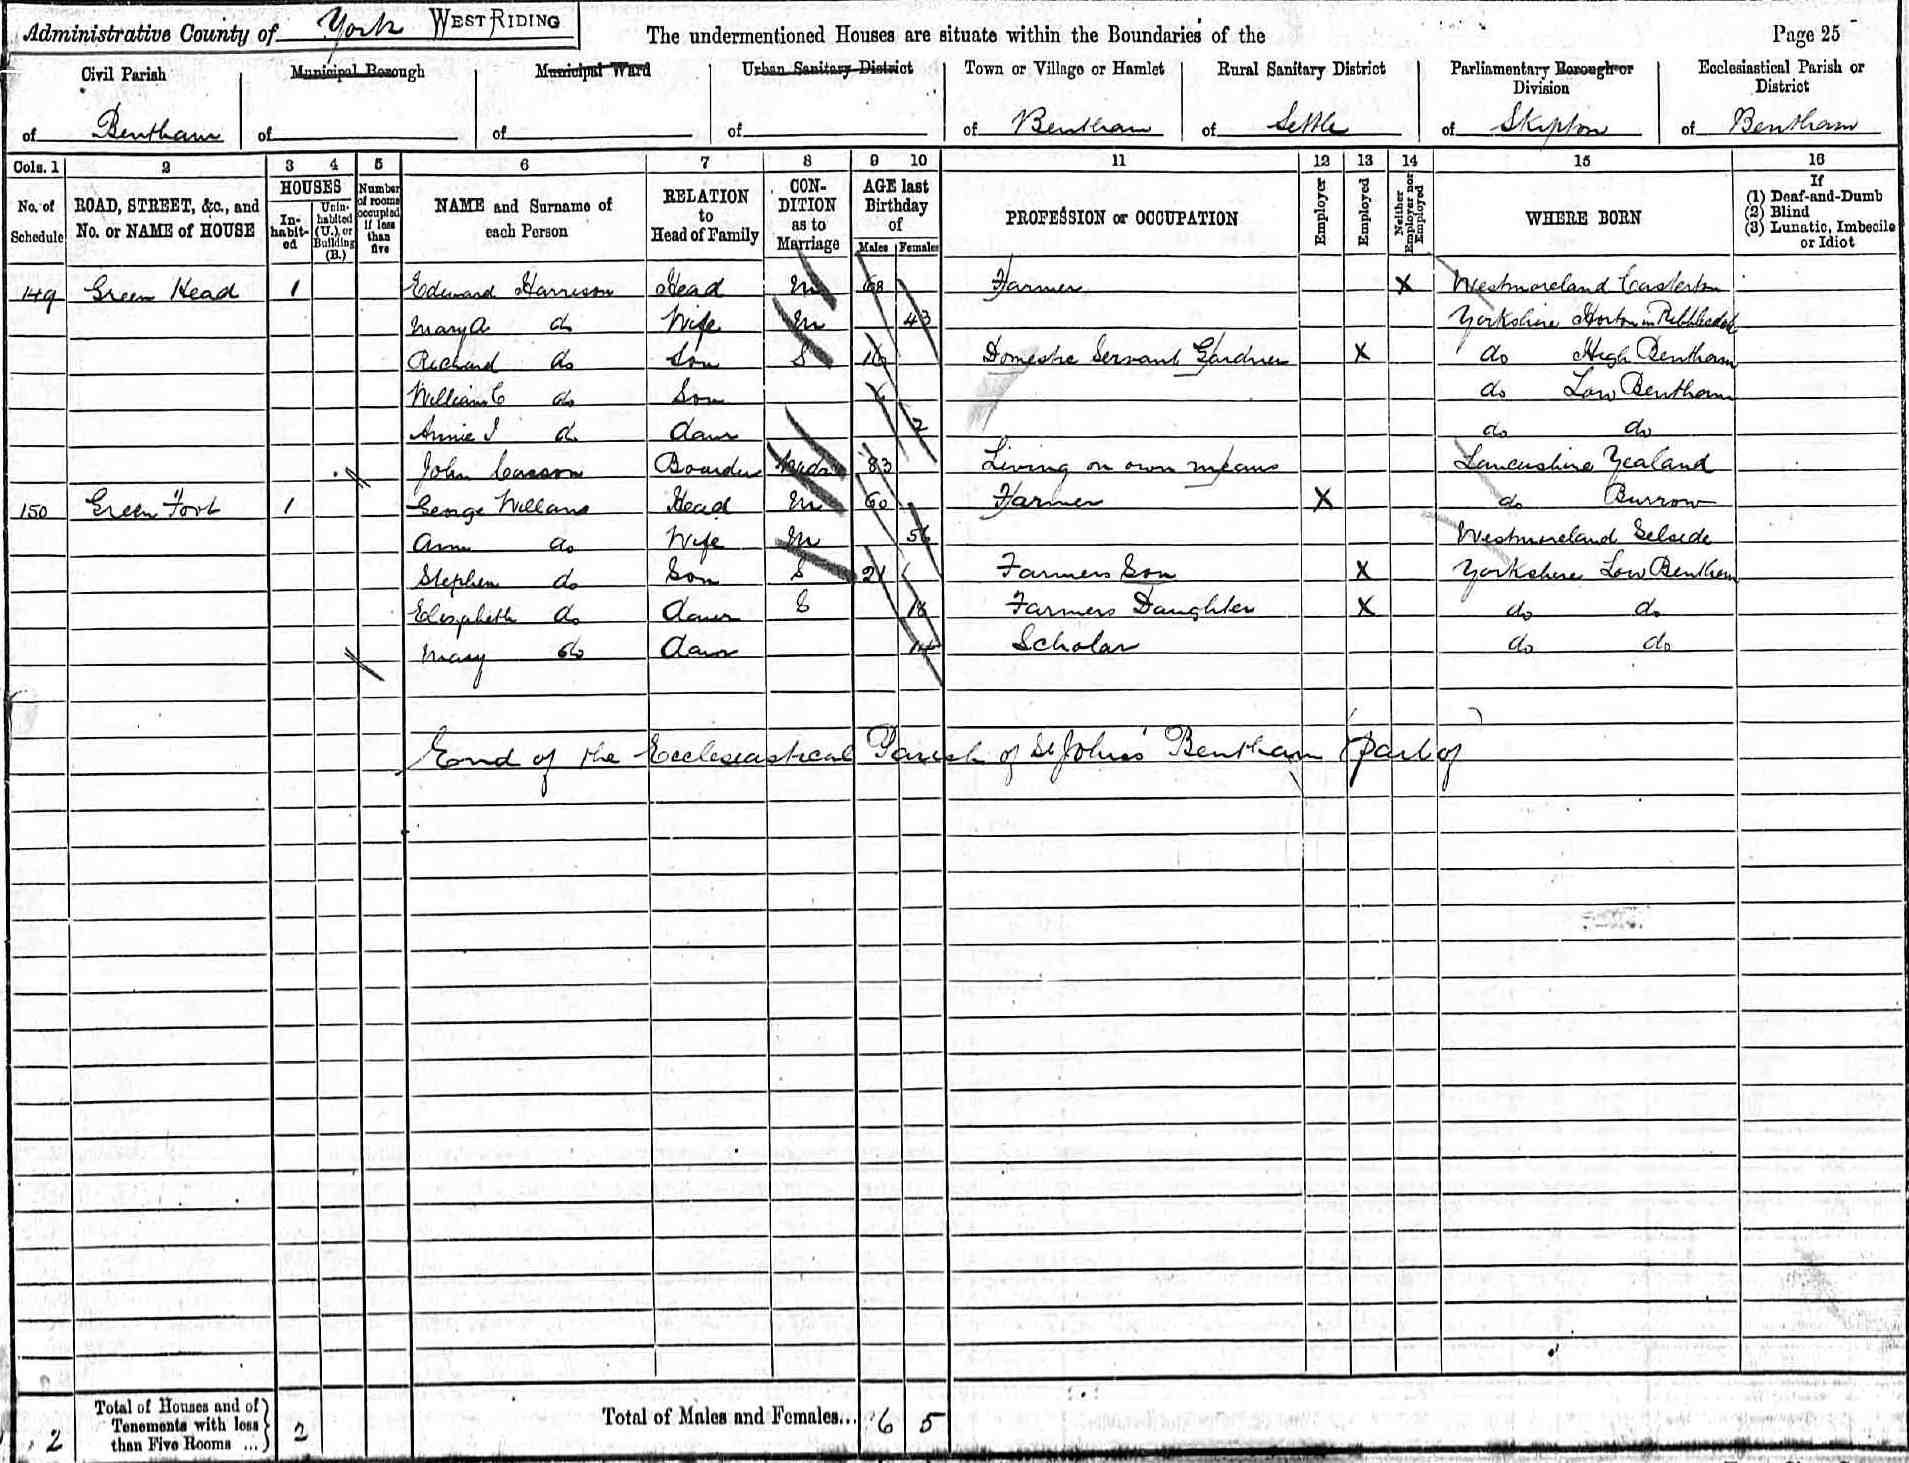 Administrative County of York WEST RIDING The undermentioned Houses are situate within the Boundaries of the Page 25
Civil Parish Municipal Borough Municipal Ward Urban Sanitary District Town or Village or Hamlet Rural Sanitary District Parliamentary Borough or Division Ecclesiastical Parish or District
of Bentham of of of of Bentham of Settle of Skipton of Bentham
Cols. 1 2 3 4 5 6 7 8 9 10 11 12 13 14 15 16
No. of Schedule ROAD, STREET, &c., and No. or NAME of HOUSE HOUSES In-habit-ed Unin-habited (U.) or Building (B.) Number of rooms occupied if less than five NAME and Surname of each Person RELATION to Head of Family CON-DITION as to Marriage AGE last Birthday of Males Females PROFESSION or OCCUPATION Employer Employed Neither Employer nor Employed WHERE BORN If (1) Deaf-and-Dumb (2) Blind (3) Lunatic, Imbecile or Idiot
149 Green Head 1 Edward Harrison Head M 68 Farmer X Westmoreland Casterton
Mary A do Wife M 43 Yorkshire Horton in Ribblesdale
Richard do Son S 16 Domestic Servant Gardner X do High Bentham
William C do Son 6 do Low Bentham
Annie I do Daur 2 do do
John Casson Boarder 83 Living on own means Lancashire Yealand
150 Green Foot 1 George Willans Head M 60 Farmer X do Burrow
Ann do Wife M 56 Westmoreland Selside
Stephen do Son S 21 Farmers Son X Yorkshire Low Bentham
Elizabeth do Daur S 18 Farmers Daughter X do do
Mary do Daur 14 Scholar do do
End of the Ecclesiastical Parish of St Johns' Bentham (part of)
2 Total of Houses and of Tenements with less than Five Rooms ... 2 Total of Males and Females... 6 5